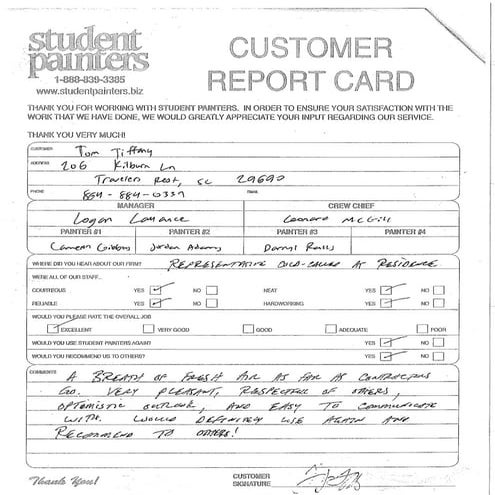 student painters
1-888-839-3385
www.studentpainters.biz
CUSTOMER REPORT CARD
THANK YOU FOR WORKING WITH STUDENT PAINTERS. IN ORDER TO ENSURE YOUR SATISFACTION WITH THE
WORK THAT WE HAVE DONE, WE WOULD GREATLY APPRECIATE YOUR INPUT REGARDING OUR SERVICE.
THANK YOU VERY MUCH!
CUSTOMER Tom Tiffany
ADDRESS 206 Kilburn Ln
Travelers Rest, SC 29690
PHONE 864-884-0339 EMAIL
MANAGER CREW CHIEF
Logan Leonard McGill
PAINTER #1 PAINTER #2 PAINTER #3 PAINTER #4
Cameron Gibbons Jordan Adams Darryl
WHERE DID YOU HEAR ABOUT OUR FIRM? REPRESENTATIVE COLD-CALLED AT RESIDENCE
WERE ALL OF OUR STAFF...
COURTEOUS YES NO NEAT YES NO
RELIABLE YES NO HARDWORKING YES NO
WOULD YOU PLEASE RATE THE OVERALL JOB
EXCELLENT VERY GOOD GOOD ADEQUATE POOR
WOULD YOU USE STUDENT PAINTERS AGAIN? YES NO
WOULD YOU RECOMMEND US TO OTHERS? YES NO
COMMENTS A BREATH OF FRESH AIR AS FAR AS CONTRACTORS
GO. VERY PLEASANT, RESPECTFUL OF OTHERS,
OPTIMISTIC OUTLOOK, AND EASY TO COMMUNICATE
WITH. WOULD DEFINITELY USE AGAIN AND
RECOMMEND TO OTHERS!
Thank You! CUSTOMER SIGNATURE